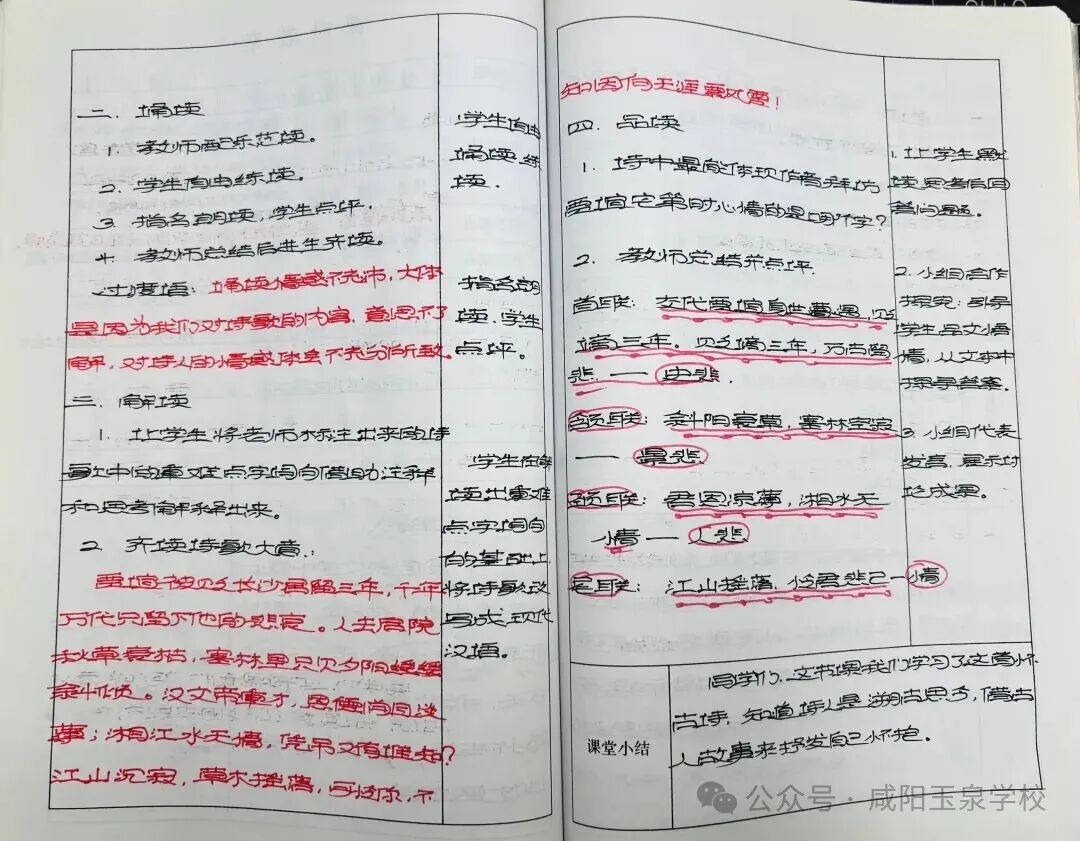 二. 诵读
1. 教师配乐范读。
2. 学生自由练读。
3. 指名朗读,学生点评.
4. 教师总结后进生齐读。
过渡语:诵读情感不充沛,大体
是因为我们对诗歌的内容、意思不了
解,对诗人的情感体会不充分所致。
三. 解读
1. 让学生将老师标注出来的诗
歌中的重难点字词句借助注释
和思考解释出来。
2. 齐读诗歌大意:
贾谊被贬长沙居留三年,千年
万代只留下他的悲哀。人去宅院
秋草衰枯,寒林里只见夕阳缓缓
斜煦。汉文帝重才,恩德尚且淡
薄;湘江水无情,凭吊又有谁知?
江山沉寂,草木摇落,可怜你,不
学生自由
诵读练
读.
指名朗
读.学生
点评。
学生在解
读出重难
点字词句
的基础上
将诗歌改
写成现代
汉语。
知因何天涯飘零!
四. 品读
1. 诗中最能体现作者拜访
贾谊宅第时心情的是哪个字?
2. 教师总结并点评.
首联:交代贾谊身世遭遇,贬
谪三年。贬谪三年,万古留
悲. — 史悲.
颔联:斜阳衰草,寒林空寂
— 景悲
颈联:君恩凉薄,湘水无
情 — 人悲
尾联:江山摇落,怜君悲己—情
1. 让学生默
读思考后回
答问题。
2. 小组合作
探究:引导
学生品文悟
情,从文本中
探寻答案。
3. 小组代表
发言,展示讨
论成果。
课堂小结
同学们,这节课我们学习了这首怀
古诗,知道诗人是溯古思今,借古
人故事来抒发自己怀抱。
公众号·咸阳玉泉学校